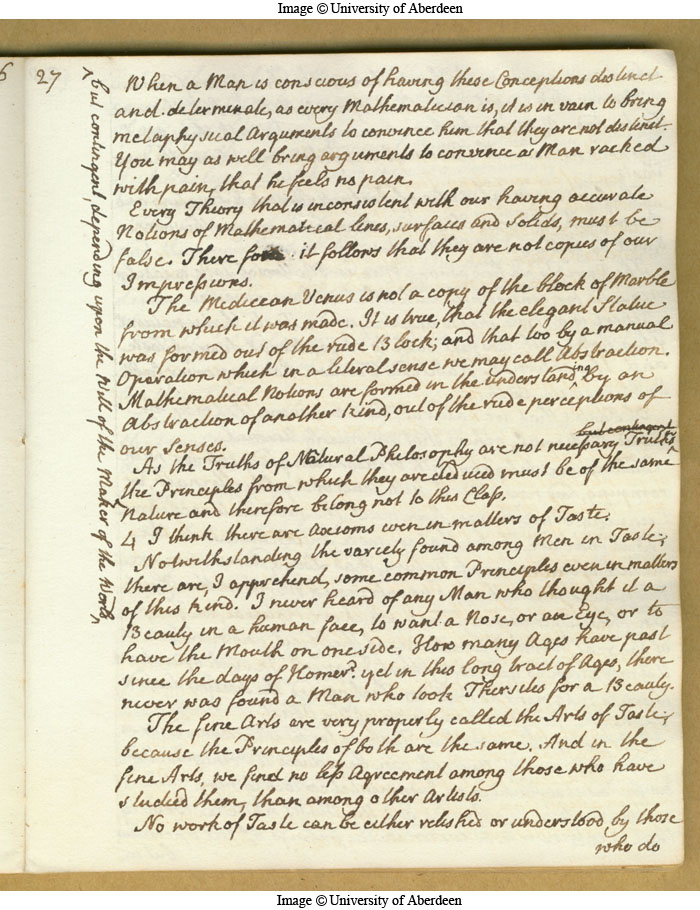 Image © University of Aberdeen
6
27
^ but contingent, depending upon the Will of the Maker of the World,
When a Man is conscious of having these Conceptions distinct
and determinate, as every Mathematician is, it is in vain to bring
metaphysical Arguments to convince him that they are not distinct.
You may as well bring arguments to convince a Man racked
with pain, that he feels no pain.
Every Theory that is inconsistent with our having accurate
Notions of Mathematical lines, surfaces and Solids, must be
false. There fore it follows that they are not copies of our
Impressions.
The Medicean Venus is not a copy of the block of Marble
from which it was made. It is true, that the elegant Statue
was formed out of the rude Block, and that too by a manual
Operation which in a literal sense we may call Abstraction.
Mathematical Notions are formed in the understanding by an
Abstraction of another kind, out of the rude perceptions of
our Senses.
but contingent
As the Truths of Natural Philosophy are not necessary Truths ^
the Principles from which they are deduced must be of the same
Nature and therefore belong not to this Class.
4 I think there are Axioms even in matters of Taste.
Notwithstanding the variety found among Men in Taste;
there are, I apprehend, some common Principles even in matters
of this kind. I never heard of any Man who thought it a
Beauty in a human face, to want a Nose, or an Eye, or to
have the Mouth on one side. How many Ages have past
since the days of Homer? yet in this long tract of Ages, there
never was found a Man who took Thersites for a Beauty.
The fine Arts are very properly called the Arts of Taste;
because the Principles of both are the same. And in the
fine Arts, we find no less Agreement among those who have
studied them, than among other Artists.
No work of Taste can be either relished or understood by those
who do
Image © University of Aberdeen